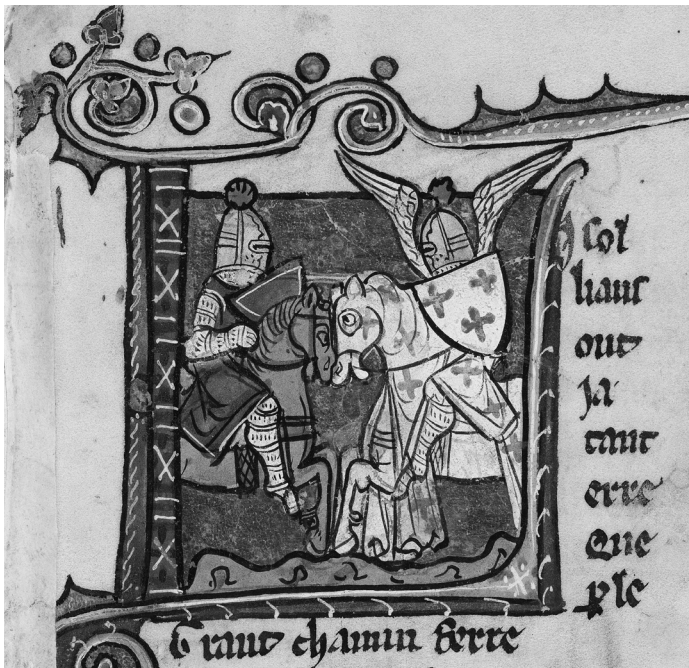 Sol
liaus
out
ja
tant
erre
Que
ꝑ le
Grant chamin ferre